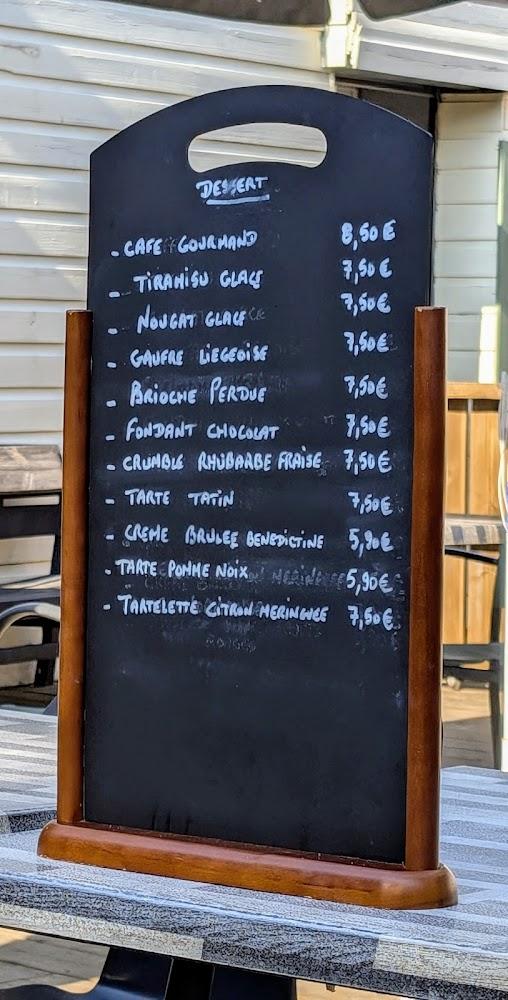 DESSERT
- CAFE GOURMAND 8,50 €
- TIRAMISU GLACE 7,50 €
- NOUGAT GLACE 7,50 €
- GAUFRE LIEGEOISE 7,50 €
- BRIOCHE PERDUE 7,50 €
- FONDANT CHOCOLAT 7,50 €
- CRUMBLE RHUBARBE FRAISE 7,50 €
- TARTE TATIN 7,50 €
- CREME BRULEE BENEDICTINE 5,90 €
- TARTE POMME NOIX 5,90 €
- TARTELETTE CITRON MERINGUEE 7,50 €